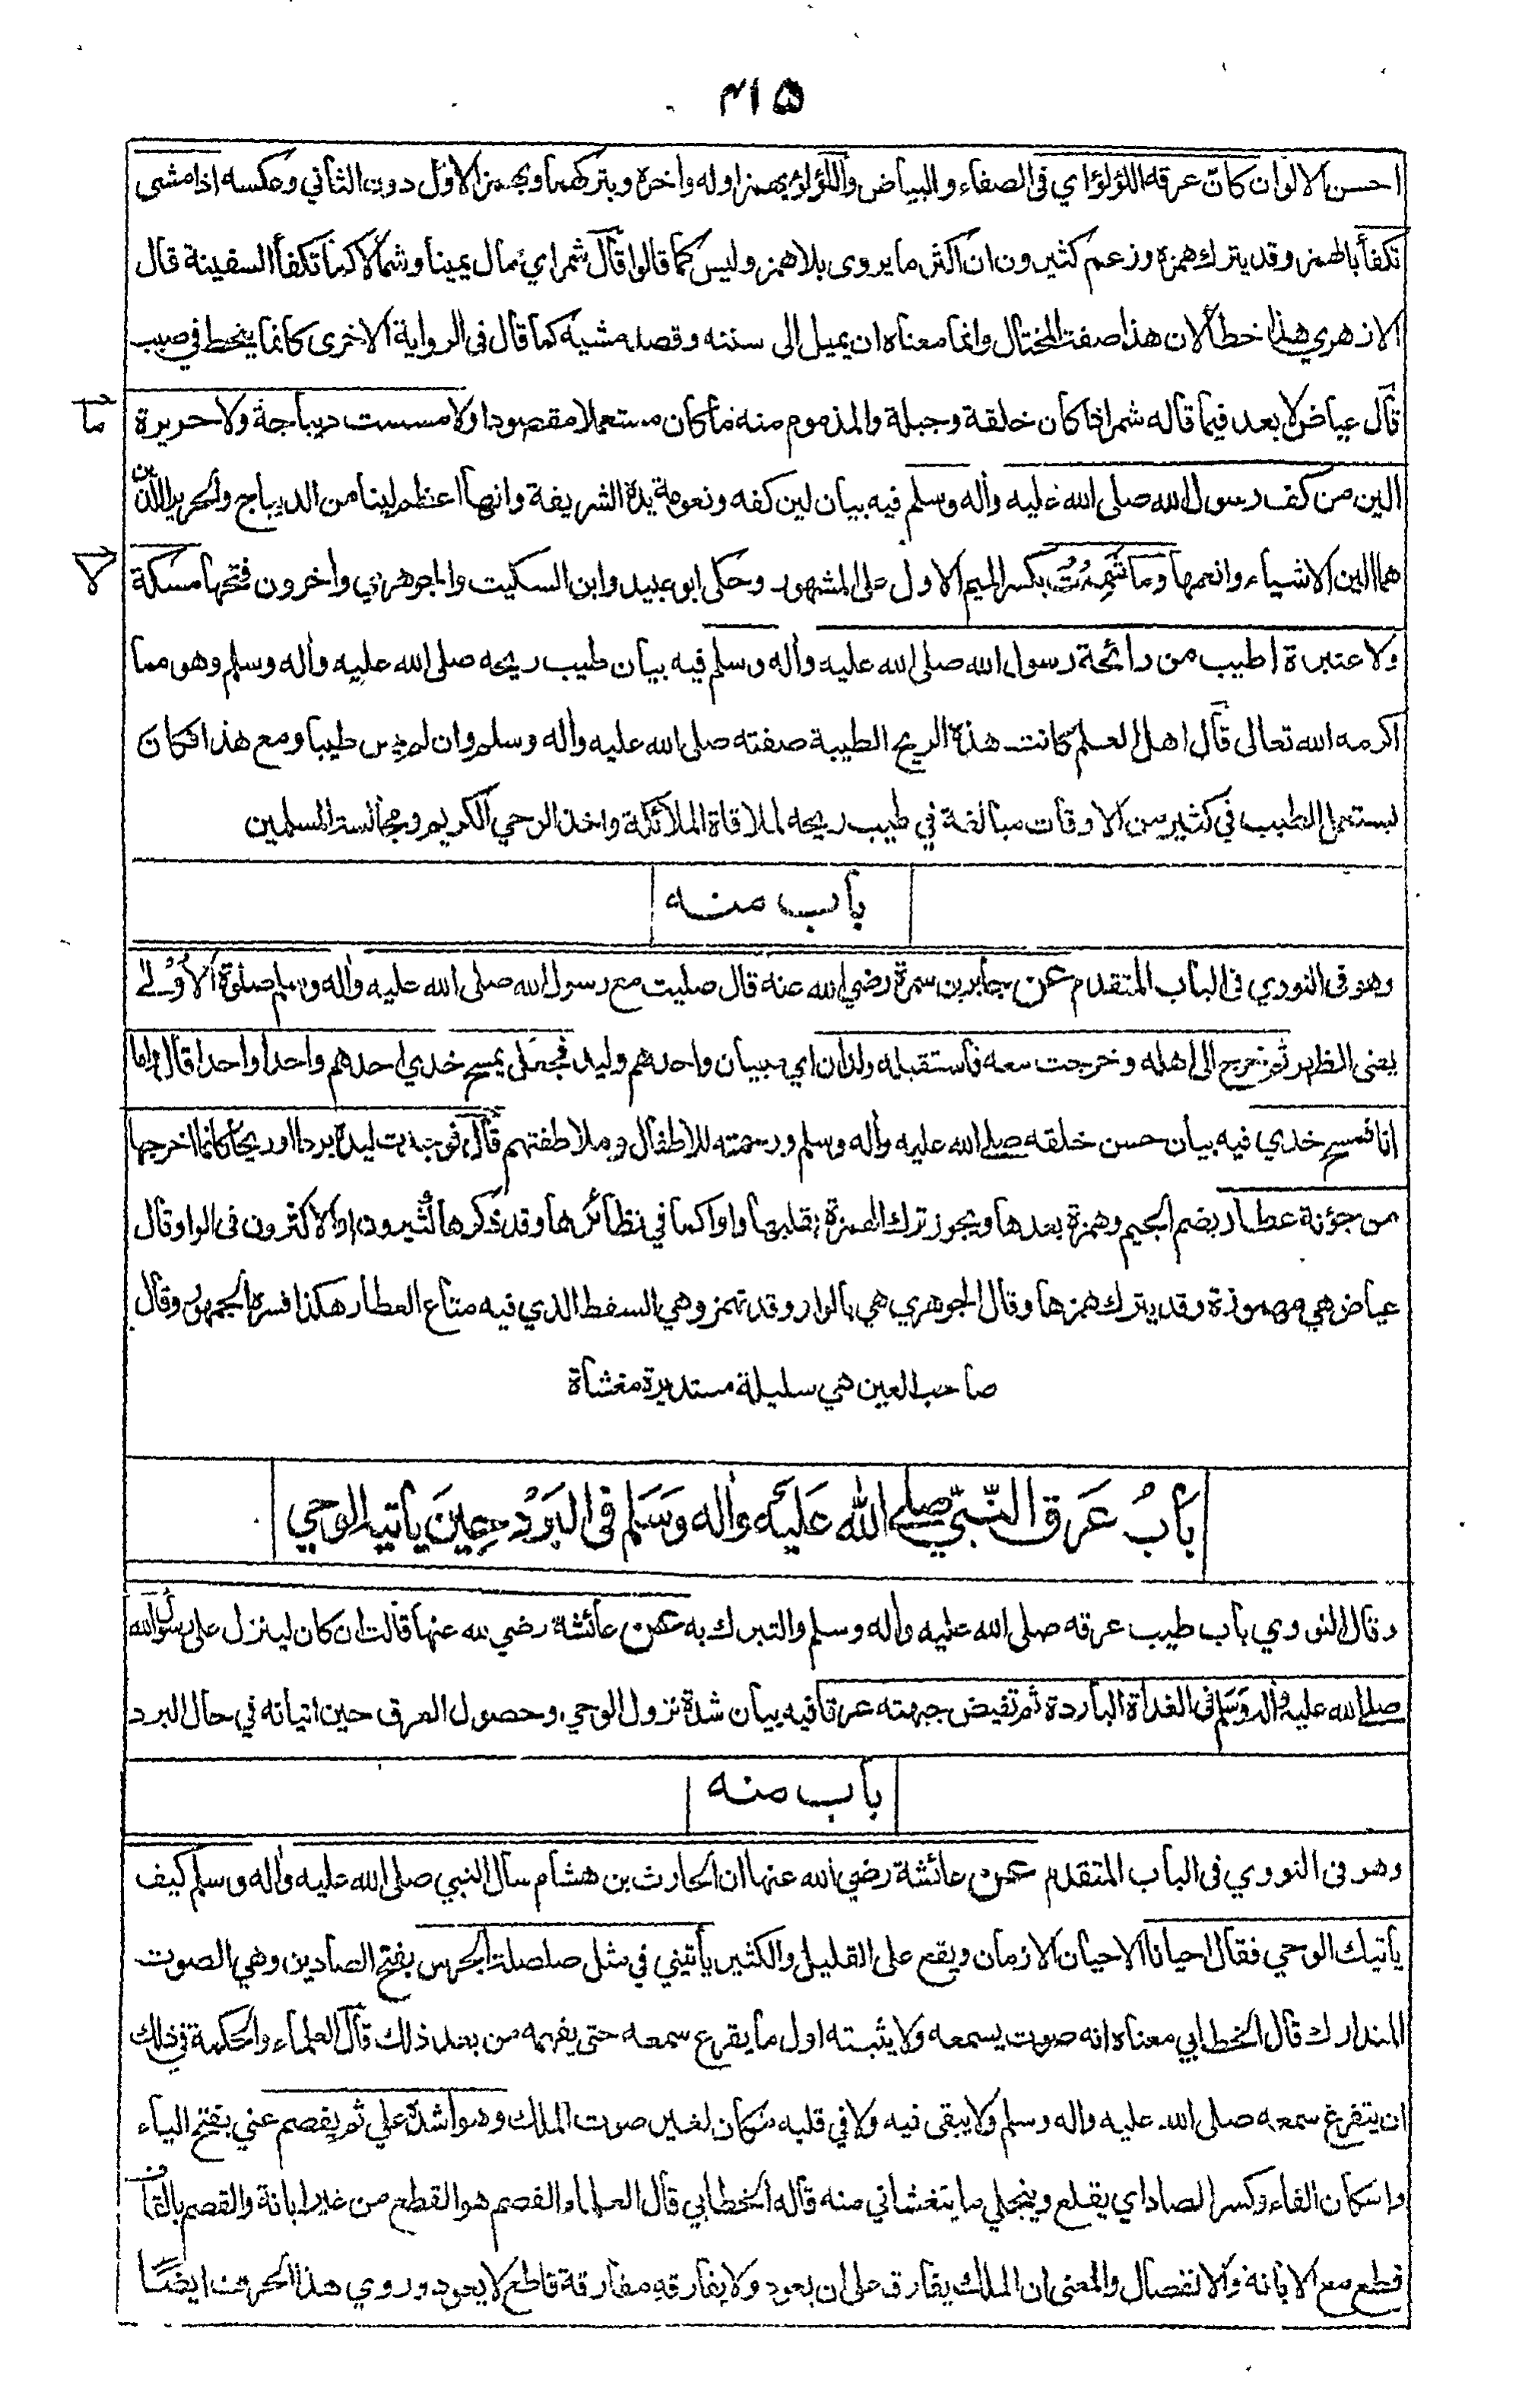 ۴۱۵
احسن الالوان كان عرقه اللؤلؤ اي في الصفاء والبياض واللؤلؤ يهمز اوله واخره ويتركهما ويهمز الاول دون الثاني وعكسه اذا مشى
تكفأ بالهمز وقد يترك همزه وزعم كثيرون ان اكثر ما يروى بلا همز وليس كما قالوا قال شمر اي مال يمينا وشمالا كما تكفأ السفينة قال
الازهري هذا خطأ لان هذا صفة المختال وانما معناه ان يميل الى سننه وقصد مشيه كما قال في الرواية الاخرى كانما ينحط في صبب
قال عياض لا بعد فيما قاله شمر اذا كان خلقة وجبلة والمذموم منه ما كان مستعملا مقصودا ولا مسست ديباجة ولا حريرة
ما
الين من كف رسول الله صلى الله عليه واله وسلم فيه بيان لين كفه ونعومة يده الشريفة وانها اعظم لينا من الديباج والحرير اللذين
هما الين الاشياء وانعمها وما شممت بكسر الميم الاول على المشهور وحكى ابو عبيد وابن السكيت والجوهري واخرون فتحها مسكة
لا
ولا عنبرة اطيب من رائحة رسول الله صلى الله عليه واله وسلم فيه بيان طيب ريحه صلى الله عليه واله وسلم وهو مما
اكرمه الله تعالى قال اهل العلم كانت هذه الريح الطيبة صفته صلى الله عليه واله وسلم وان لم يمس طيبا ومع هذا فكان
يستعمل الطيب في كثير من الاوقات مبالغة في طيب ريحه لملاقاة الملائكة واخذ الوحي الكريم ومجالسة المسلمين
باب منه
وهو في النووي في الباب المتقدم عن جابر بن سمرة رضي الله عنه قال صليت مع رسول الله صلى الله عليه واله وسلم صلوة الاولى
يعني الظهر ثم خرج الى اهله وخرجت معه فاستقبله ولدان اي صبيان واحدهم وليد فجعل يمسح خدي احدهم واحدا واحدا قال واما
انا فمسح خدي فيه بيان حسن خلقه صلى الله عليه واله وسلم ورحمته للاطفال وملاطفتهم قال فوجدت ليده بردا او ريحا كانما اخرجها
من جؤنة عطار بضم الجيم وهمزة بعدها ويجوز ترك الهمزة بقلبها واوا كما في نظائرها وقد ذكرها كثيرون او الاكثرون في الواو قال
عياض هي مهموزة وقد يترك همزها وقال الجوهري هي بالواو وقد تهمز وهي السفط الذي فيه متاع العطار هكذا فسره الجمهور وقال
صاحب العين هي سليلة مستديرة مغشاة
بَابُ عَرَقِ النَّبِيِّ صلى الله عَلَيْه واله وَسَلم في البَرْدِ حِيْنَ يأتيه الوحي
وقال النووي باب طيب عرقه صلى الله عليه واله وسلم والتبرك به عن عائشة رضي الله عنها قالت ان كان لينزل على رسول الله
صلى الله عليه واله وسلم في الغداة الباردة ثم تفيض جبهته عرقا فيه بيان شدة نزول الوحي وحصول العرق حين اتيانه في حال البرد
باب منه
وهو في النووي في الباب المتقدم عن عائشة رضي الله عنها ان الحارث بن هشام سال النبي صلى الله عليه واله وسلم كيف
يأتيك الوحي فقال احيانا الاحيان الازمان ويقع على القليل والكثير يأتيني في مثل صلصلة الجرس بفتح الصادين وهي الصوت
المتدارك قال الخطابي معناه انه صوت يسمعه ولا يثبته اول ما يقرع سمعه حتى يفهمه من بعد ذلك قال العلماء والحكمة في ذلك
ان يتفرغ سمعه صلى الله عليه واله وسلم ولا يبقى فيه ولا في قلبه مكان لغير صوت الملك وهو اشده علي ثم يفصم عني بفتح الياء
واسكان الفاء وكسر الصاد اي يقلع وينجلي ما يتغشاني منه قاله الخطابي قال العلماء الفصم هو القطع من غير ابانة والقصم بالقاف
قطع مع الابانة والانفصال والمعنى ان الملك يفارق على ان يعود ولا يفارقه مفارقة قاطع لا يعود وروي هذا الحرف ايضا